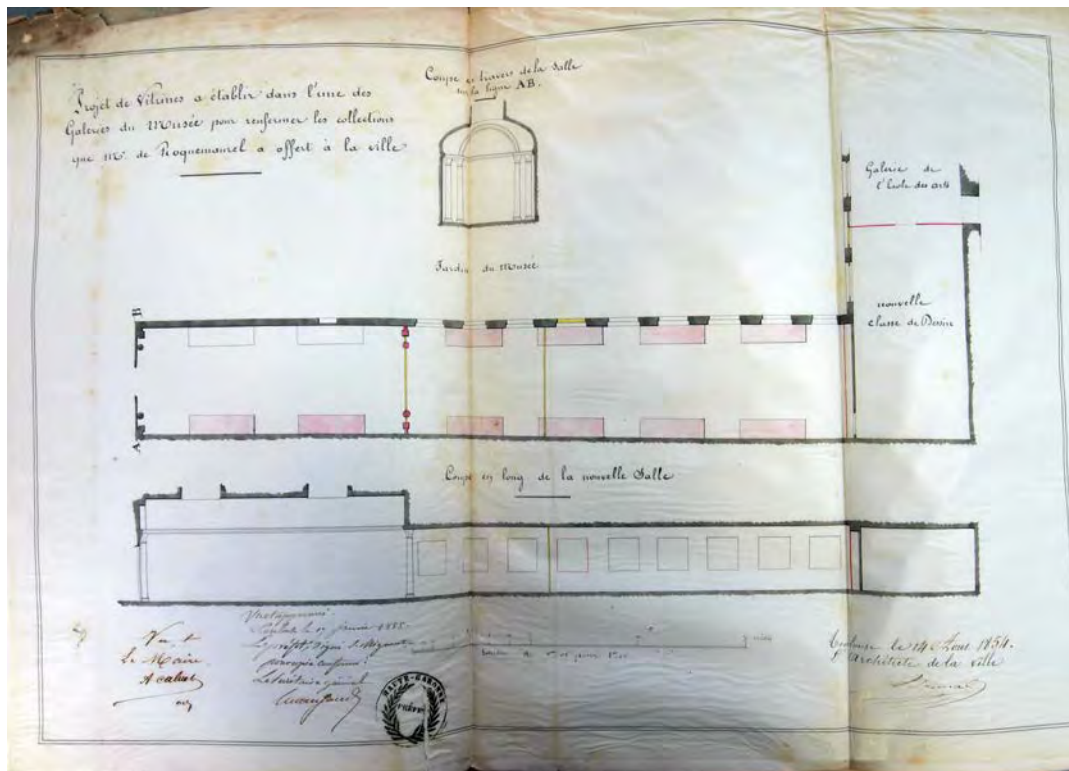 Projet de Vitrines a établir dans l'une des
Galeries du Musée pour renfermer les collections
que Mr. de Roquemaurel a offert à la ville
Coupe en travers de la Salle
sur la ligne AB.
Galerie de
l'École des arts
Jardin du Musée
nouvelle
classe de Dessin
B
A
Coupe en long de la nouvelle Salle
Vu
Le Maire
Vu et approuvé
Toulouse le janvier 1855
Le préfet, signé
pour copie conforme
Le Secrétaire général
HAUTE-GARONNE
PRÉFRE
Toulouse le 14 Aout 1854.
l'Architecte de la ville